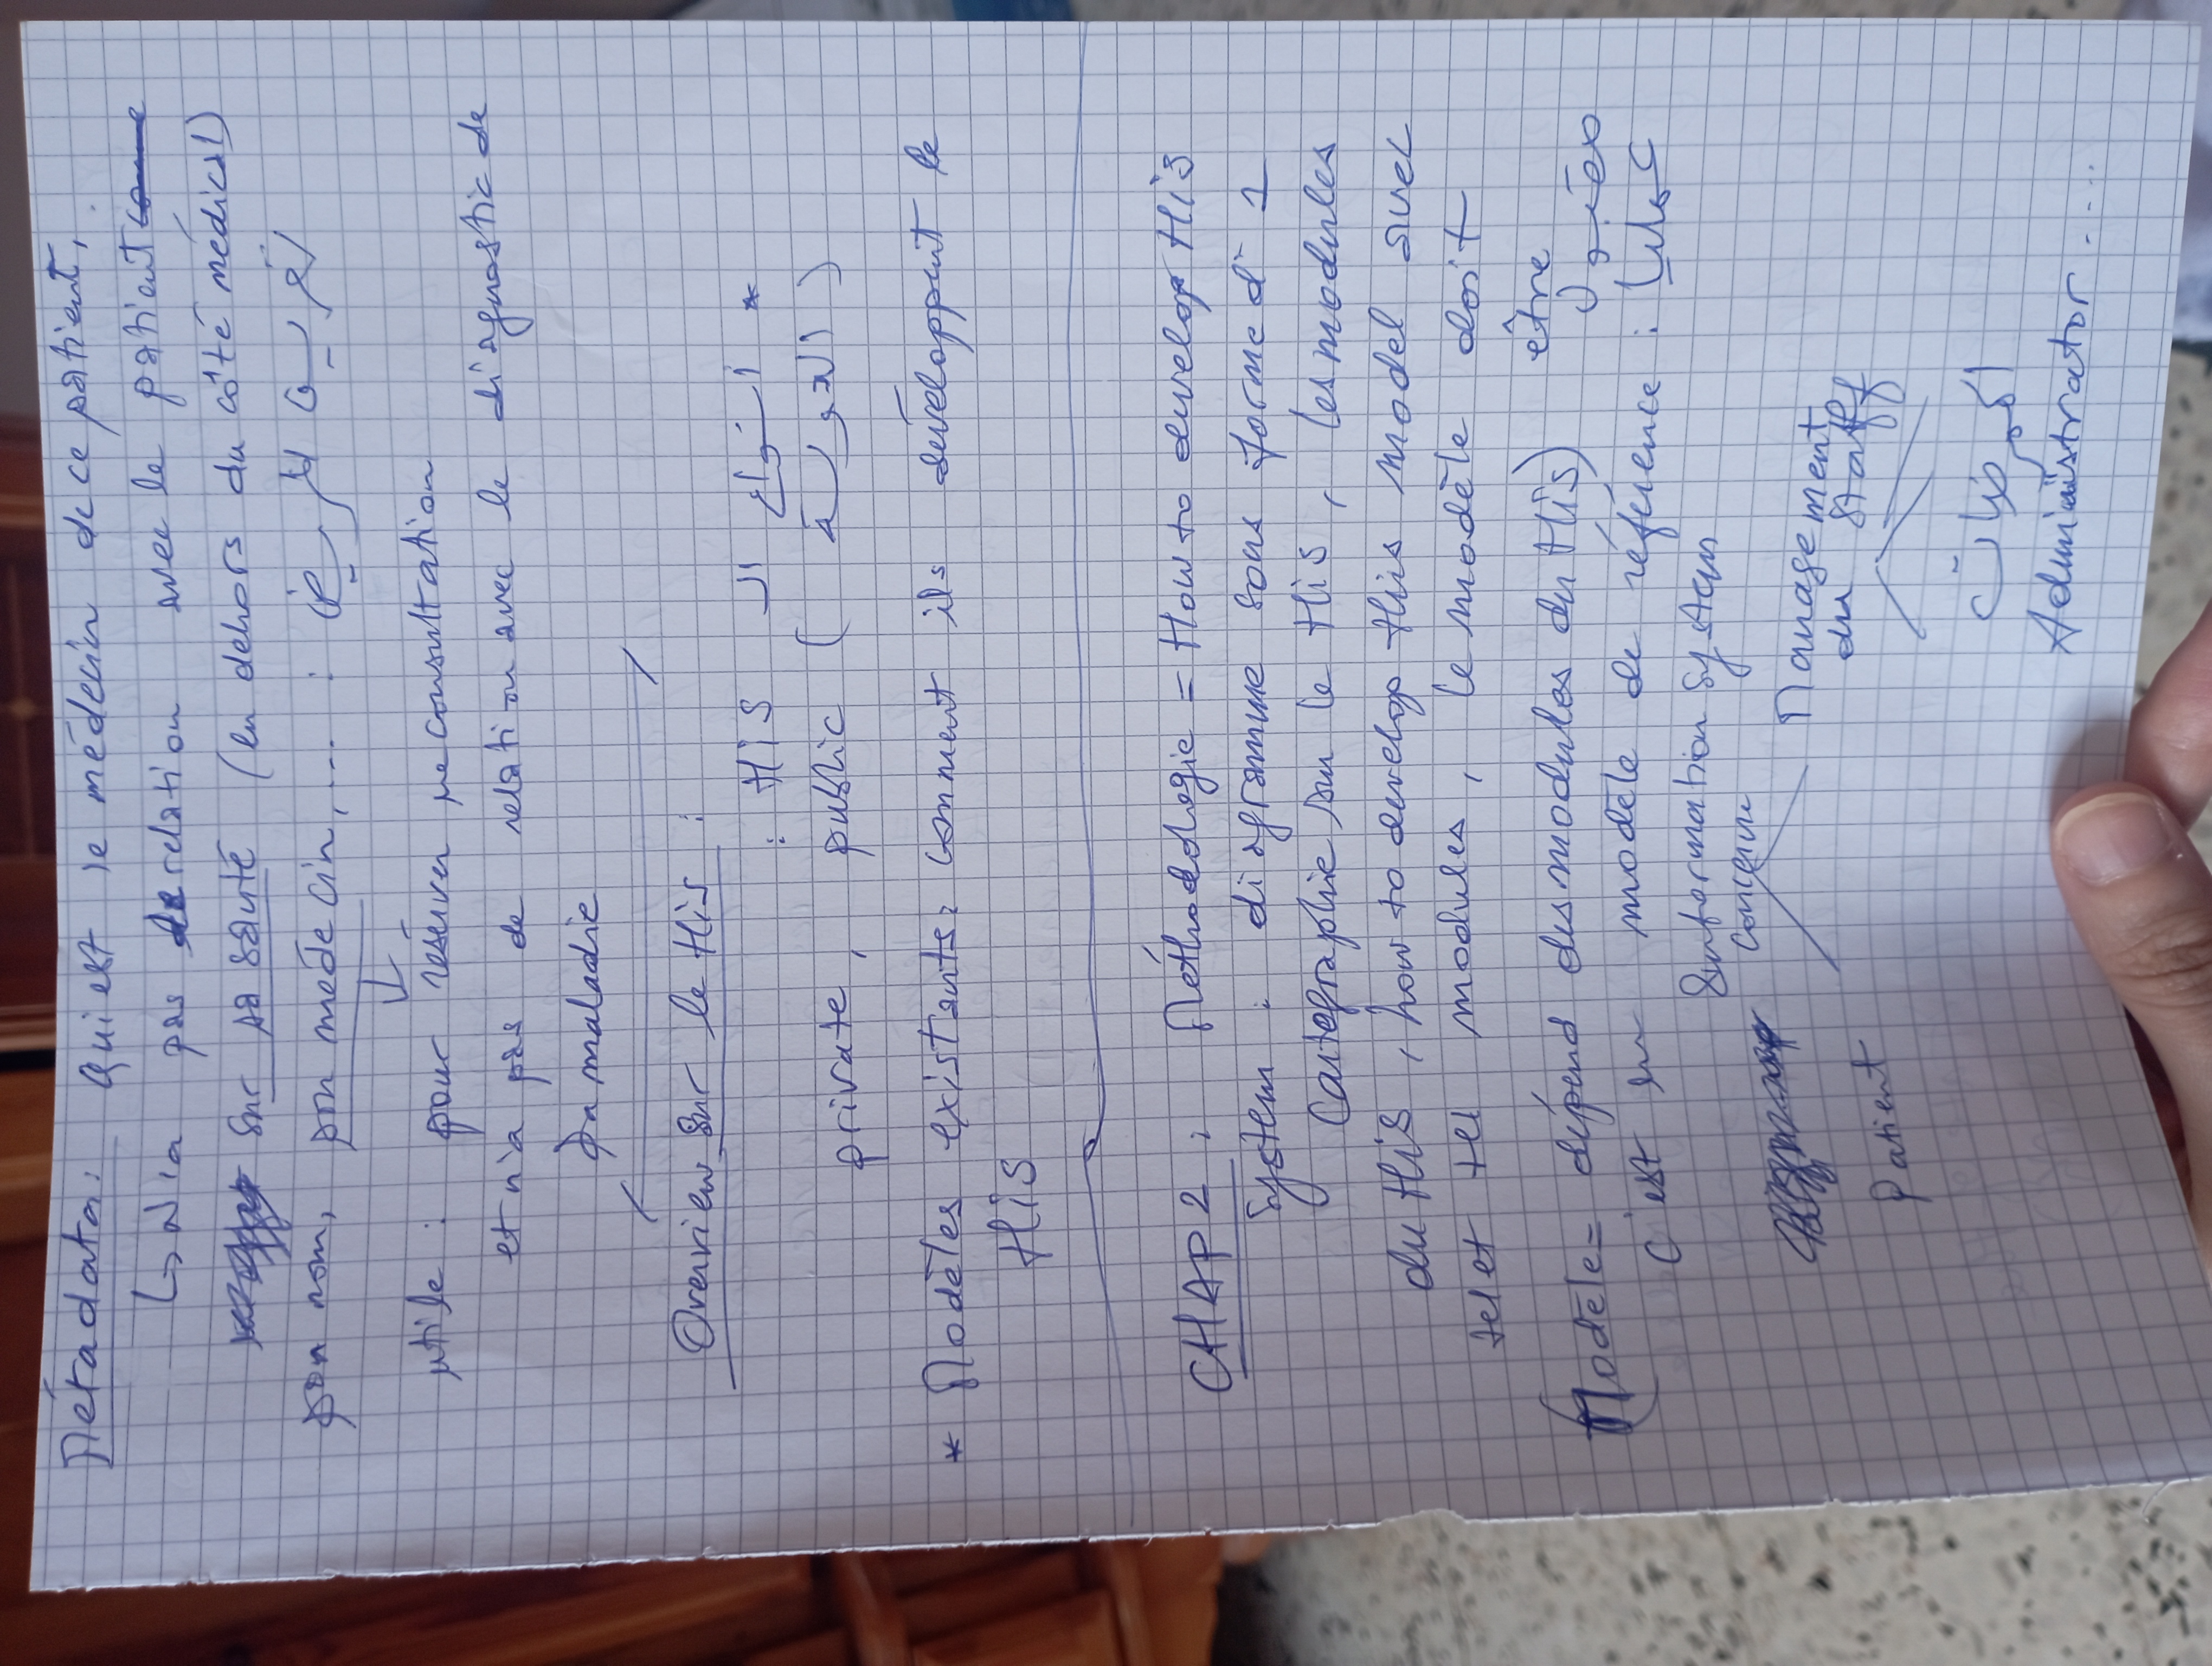 Métadata: Qui est le médecin de ce patient,
↳ N'a pas de relation avec le patient
sur sa santé (en dehors du côté médical)
son nom, son médecin, ... : تعريف المريض
utile : pour réserver une consultation
et n'a pas de relation avec le diagnostic de
sa maladie
Overview sur le His :
* أنواع الـ HiS :
private, public (الدولة)
* Modèles existants: comment ils développent le
His
CHAP 2 : Méthodologie = How to develop His
System : diagramme sous forme d' 1
Cartographie sur le His, les modules
du His, how to develop this model avec
tel et tel modules, le modèle doit
être
(Modèle= dépend des modules du His) مقبول
c'est un modèle de référence : عمليا
Information System
concerne
Management
du Staff
Patient
الممرضات
Administrator ....